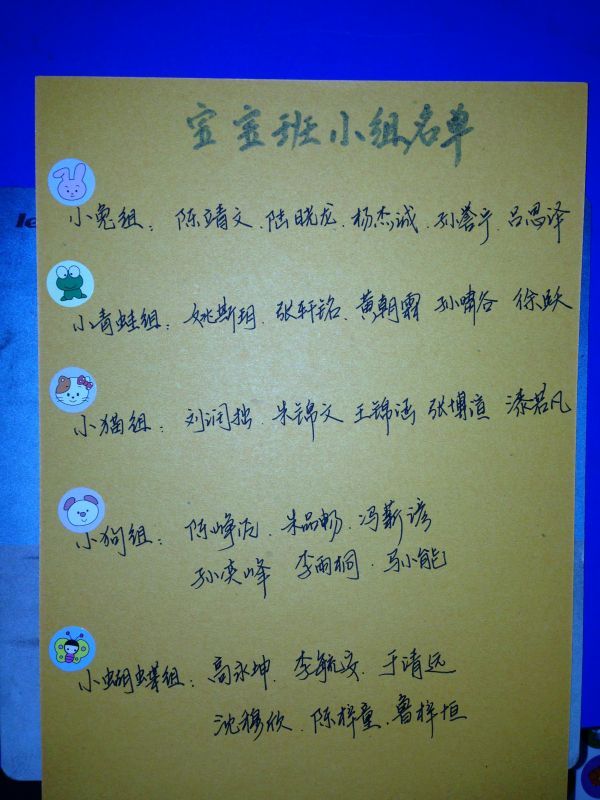 宝宝班小组名单
le
小兔组：陈靖文、陆晓龙、杨杰诚、孙誉宁、吕思泽
小青蛙组：姚斯玥、张轩铭、黄朝霖 孙啸谷 徐跃
小猫组：刘润拙、朱锦文 王锦涵 张博道 漆若凡
小狗组：陈峥、朱品畅、冯薪谚
孙奕峰 李雨桐、马小能
小蝴蝶组：高永坤、李毓、于靖远
沈穆欣、陈梓童、鲁梓恒